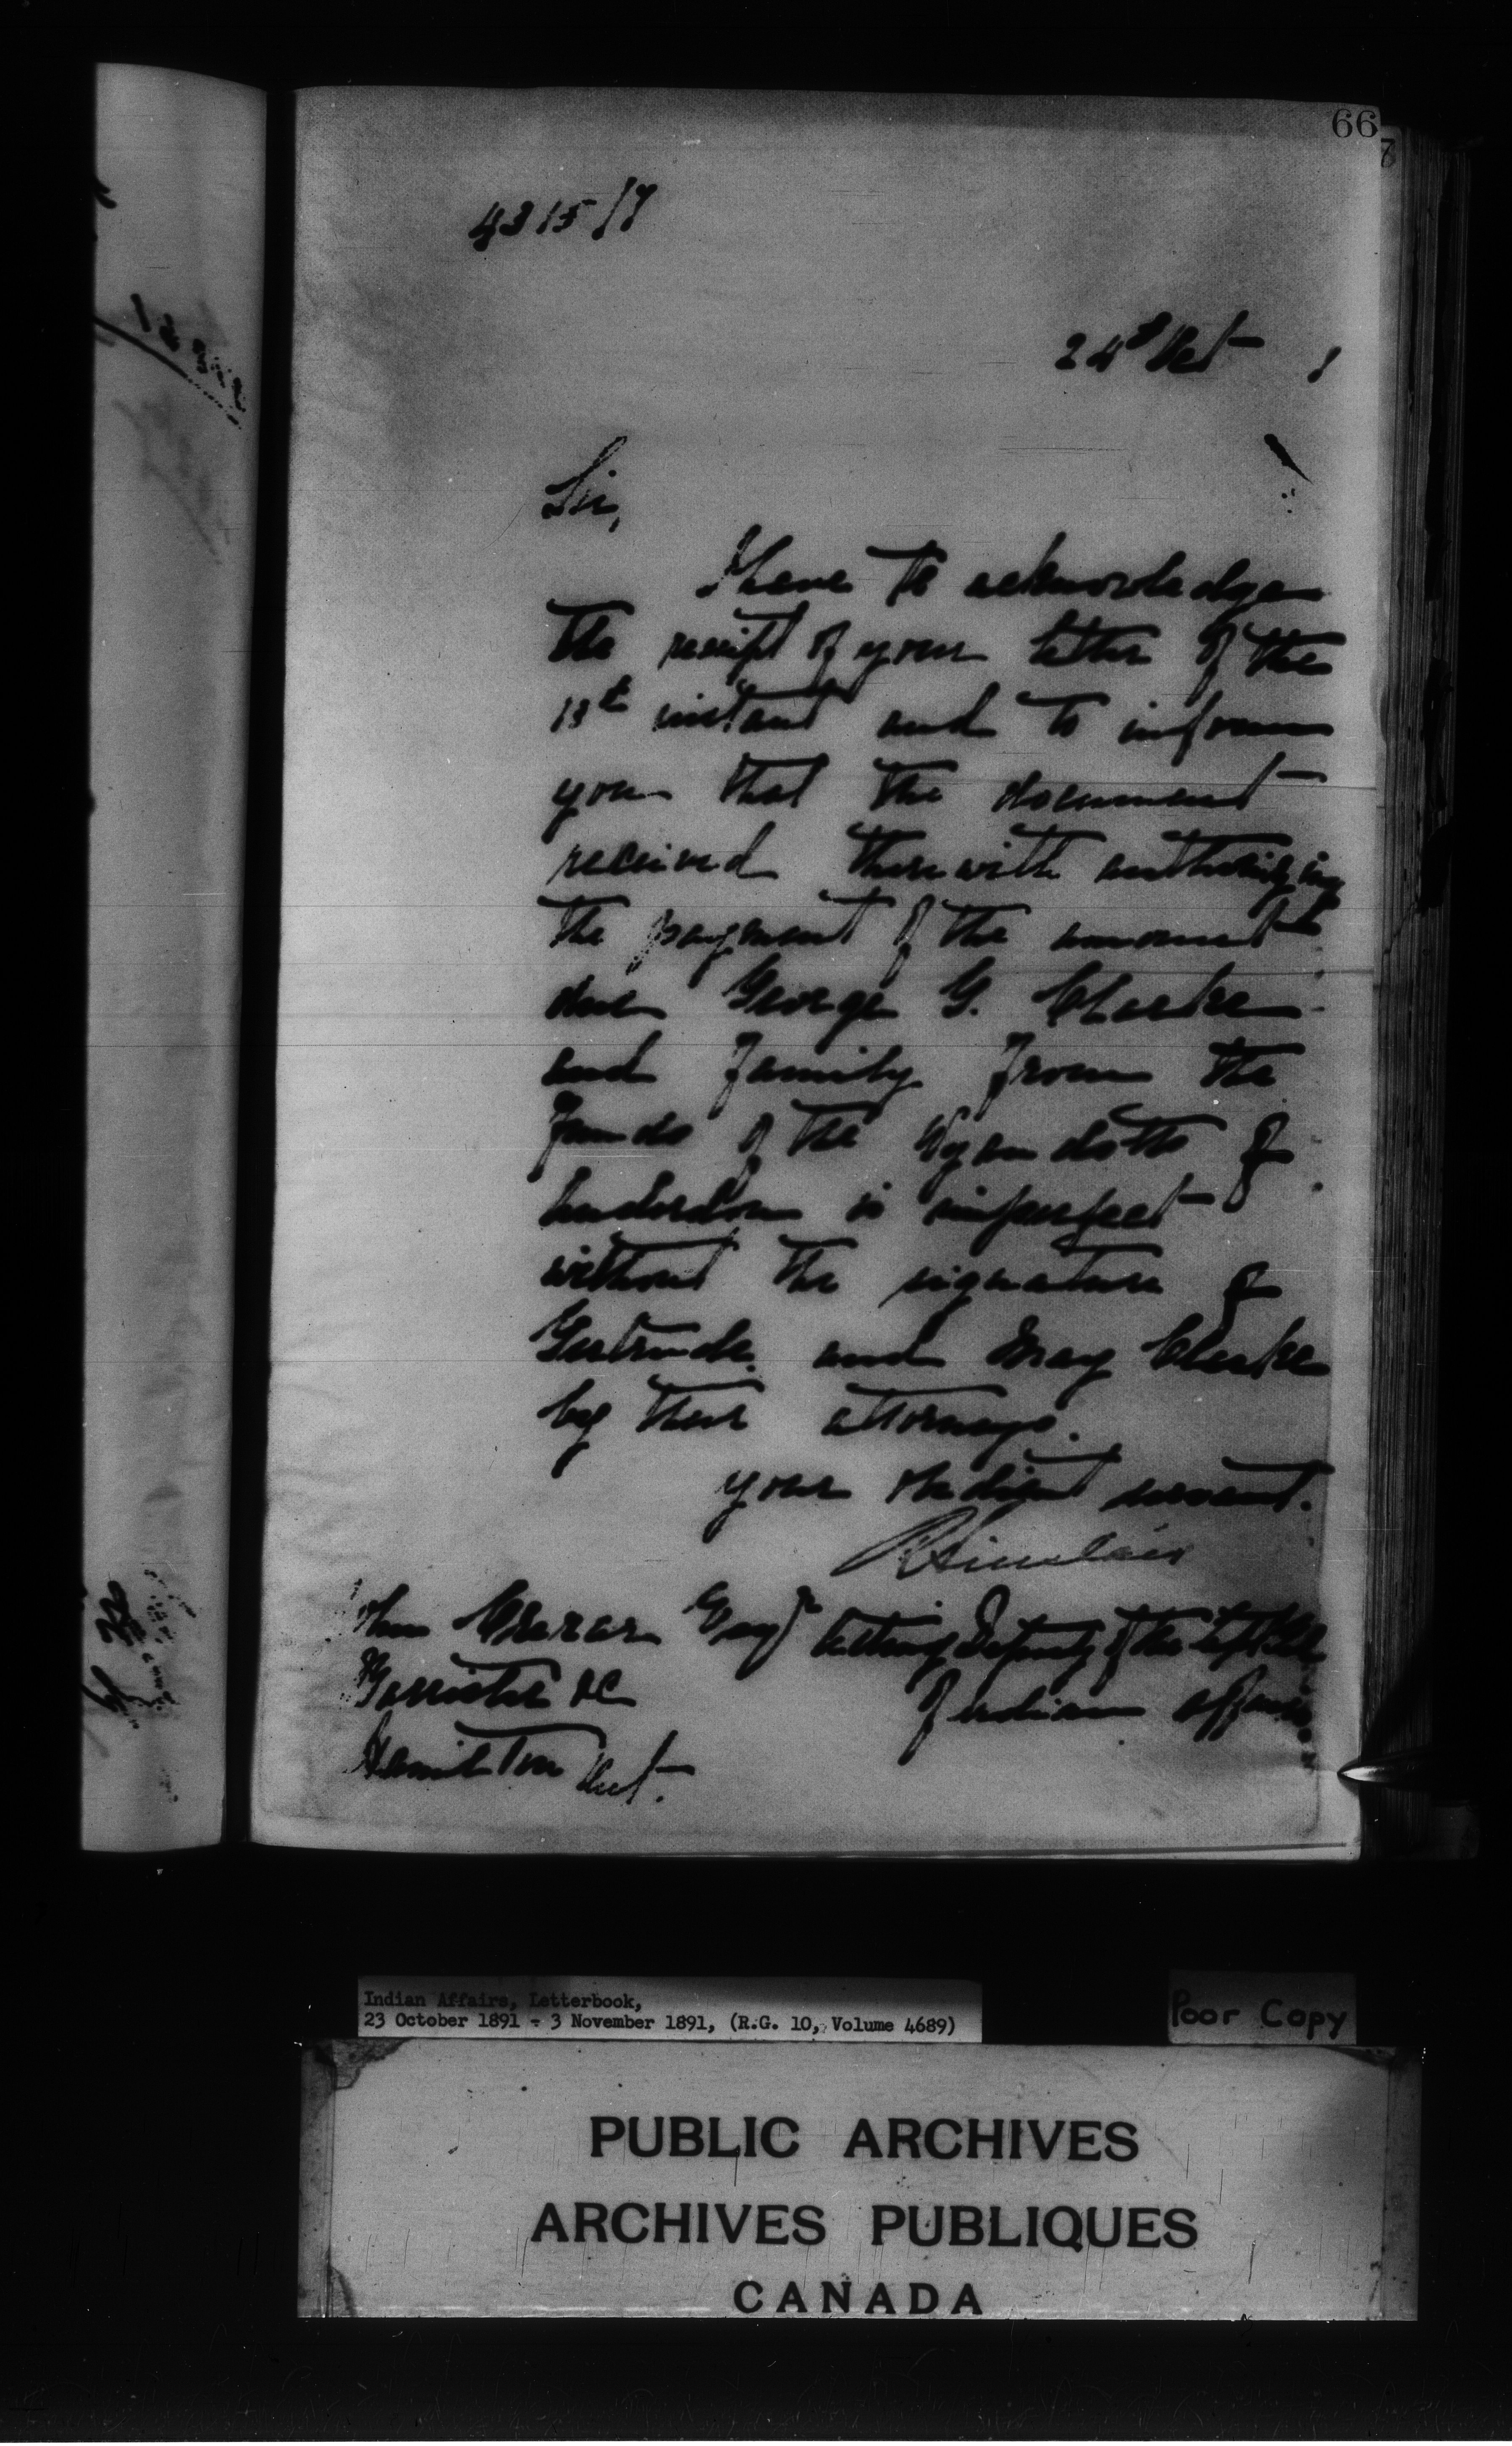 66
4315/7
24th Oct 1
Sir,
I have to acknowledge
the receipt of your letter of the
13th instant and to inform
you that the document
received therewith authorizing
the payment of the amount
due George G. Clarke
and family from the
funds of the Wyandotts of
Anderdon is imperfect
without the signature of
Gertrude and May Clarke
by their attorneys.
Your obedient servant.
R Sinclair
John Crerar Esqr
Acting Deputy of the Supt Genl
Barrister &c
of Indian Affairs
Hamilton Ont.
Indian Affairs, Letterbook,
23 October 1891 - 3 November 1891, (R.G. 10, Volume 4689)
Poor Copy
PUBLIC ARCHIVES
ARCHIVES PUBLIQUES
CANADA